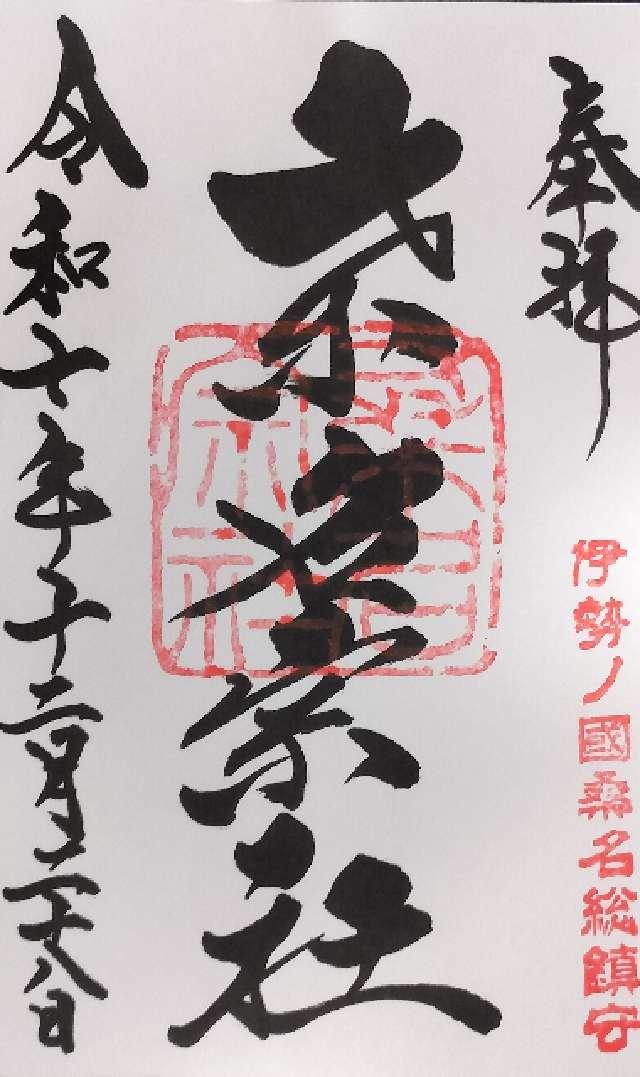 奉拝
伊勢ノ國桑名総鎮守
桑名宗社
令和七年十二月二十八日